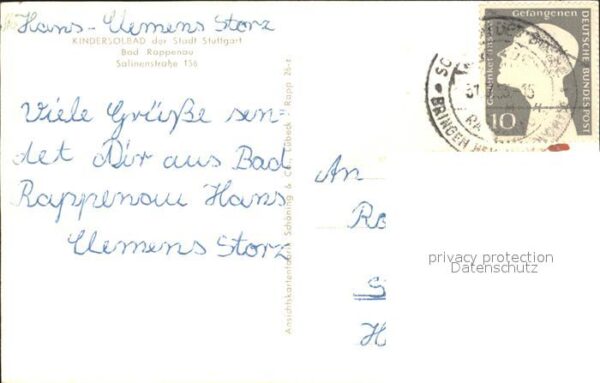 Hans-Clemens Storz
KINDERSOLBAD der Stadt Stuttgart
Bad Rappenau
Salinenstraße 156
Viele Grüße sen=
det Dir aus Bad
Rappenau Hans
Clemens Storz
Ansichtskartenfabrik Schöning & Co., Lübeck · Rapp 26-t
Gefangenen
DEUTSCHE BUNDESPOST
10
An
Ro
S
H
privacy protection
Datenschutz